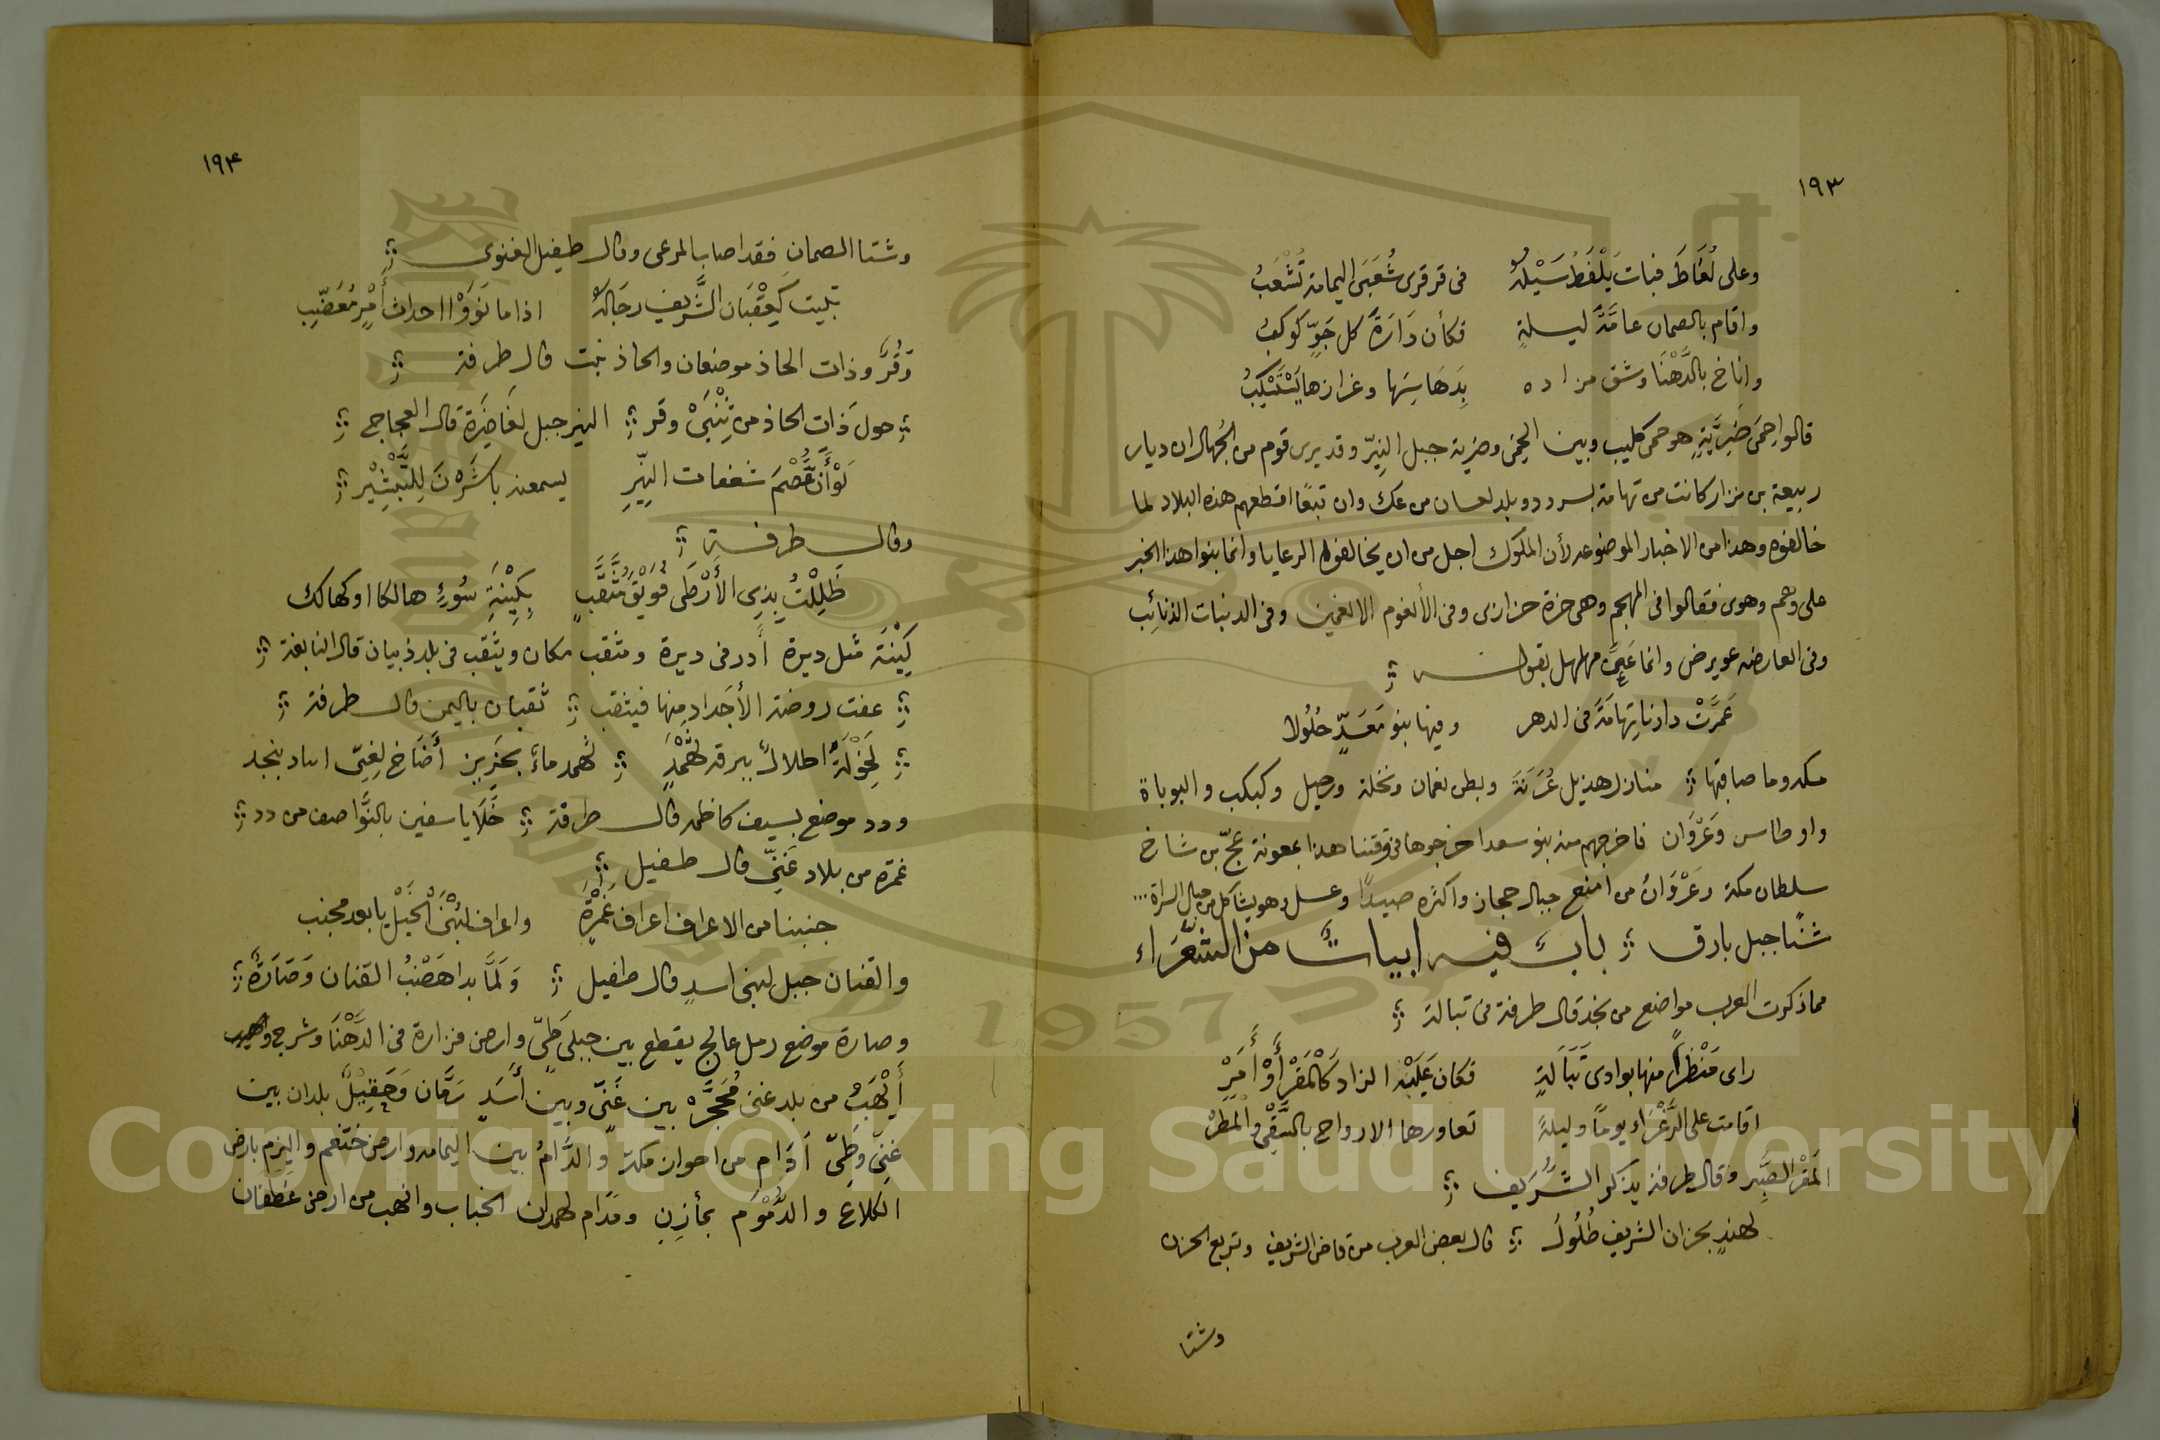 ١٩٣
وعلى لُغَاطَ فبات يَلْغَطُ سَيْلهُ في قرقرى شُعَبَى اليمامة تُشْعَبُ
واقام بالصمان عامَّةَ ليلةٍ فكأن دَارَةَ كل جَوٍّ كوكبُ
واناخ بالدَّهْنَا وشق مزاده
قالوا حِمَى ضَرِيَّةٍ هو حمى كليب وبين الحِمَى وضرية جبل النِيرّ وقد يرى قوم من الجُهال ان ديار
ربيعة بن نزار كانت من تهامة بسردد وبلد لعسان من عك وان تبعًا اقطعهم هذه البلاد لما
خالفوه وهذا من الاخبار الموضوعه لأن الملوك اجل من ان يخالفوا الرعايا وانما بنوا هذا الخبر
على وهم وهوى فقالوا في المهجم وهي خزة خزازى وفي الأنعوم الانعمين وفي الدنبات الذنائِب
وفي العارضه عويرض وانما مهلهل يقول
عَمَرَتْ دارنا تِهامَةَ في الدهر وفيها بنو مَعَدٍّ حُلُولا
مكه وما صاقبها منازل هذيل عُرَنَةَ وبطن نعمان ونخلة ورحيل وكبكب والبوباة
واوطاس وغَزْوَان فاخرجهم منه بنو سعد اخرجوها في وقتنا هذا بمعونة عجّ بن شاخ
سلطان مكة وغَزْوَانُ من امنع جبال حجاز واكثره صيدًا وعسلا وهو يشاكل من جبال السراة ...
شنًا جبل بارق بابٌ فيه ابيات من الشعراء
مما ذكرت العرب مواضع من نجد قال طرفة في تبالة
راى مَنْظَرًا منها بوادى تَبَالةٍ فكان عَلَيْهِ الزاد كَالمَقْرِ أَوْ أَمَرّْ
اقامت على الزَّعْرَاء يومًا وليلةً تعاورها الارواح بالسَّفْىِ والمَطَرْ
المَقْر الصَبِر وقال طرفة يذكر الشُرَيف
لهندٍ بحزان الشريف طُلُولُ قال بعض العرب من قاض الشريف وتربع الحزن
وشتا
١٩٤
وشتا الصمان فقد اصاب المرعى وقال طيفيل الغنوى
تبيت كَعِقْبَان الشَّرِيف رجَالهُ اذا ما نَوَوْا احداث أَمْرٍ مُعَضِّبِ
وَقُرَّ وذات الحاذ موضعان والحاذ نبت قال طرفة
حول ذَات الحاذ من ثِنْيَىْ وقر النير جبل لغَاضِرَة قال العجاج
لَوْ أَنَّ عُصْمَ شعفات النِّيرِ يسمعنه بَاشَرْنَ لِلتَّبْشِيْرِ
وقال طرفة
ظَلِلْتُ بِذِي الأَرْطَى فُوَيْقَ مُثَقَّبٍ بِكِيْنَةِ سُوْءٍ هالكا او كهالك
كِيْنَة مثل ديرة أدر في ديرة ومثقب مكان ويثقب في بلد ذبيان قال النابغة
عفت روضة الأجداد منها فيثقب ثقبان باليمن قال طرفة
لِخَوْلَةَ اطلالٌ ببرقه ثَهْمَدِ ثهمد ماءٌ بحَزِيز أُضَاخ لِغِنِيّ
ودد موضع بسيف كاظمه قال طرفة خَلَايا سفين بالنَّواصف من دد
غمرة من بلاد غَنِيّ قال طفيل
جنبنا من الاعراف اعراف غَمْرَةٍ واعراف لُبْنَى الخَيْل يا بعد مجنب
والقنان جبل لبني اسدٍ قال طفيل وَلَمَّا بدا هَضْبُ القنان وَصَارَةٌ
وصارة موضع رمل عالج يقطع بين جبلى طَيّ وارض فزارة في الدَّهْنَا وشرج
أَيْهَبُ من بلد غنى مُحَجَّرْ بين غَنِيّ وبين أَسَدٍ رَمَّان وَحَقِيْلٌ بلدان بين
غَنِيّ وَطَيّ أدَام من احواز مكة والدَّامُ بين اليمامه وارض خثعم واليزم بارض
الكلاع والدُّمُوْم بمأزِنِ ومدام لهمدان الخباب وانهب من ارض غطفان